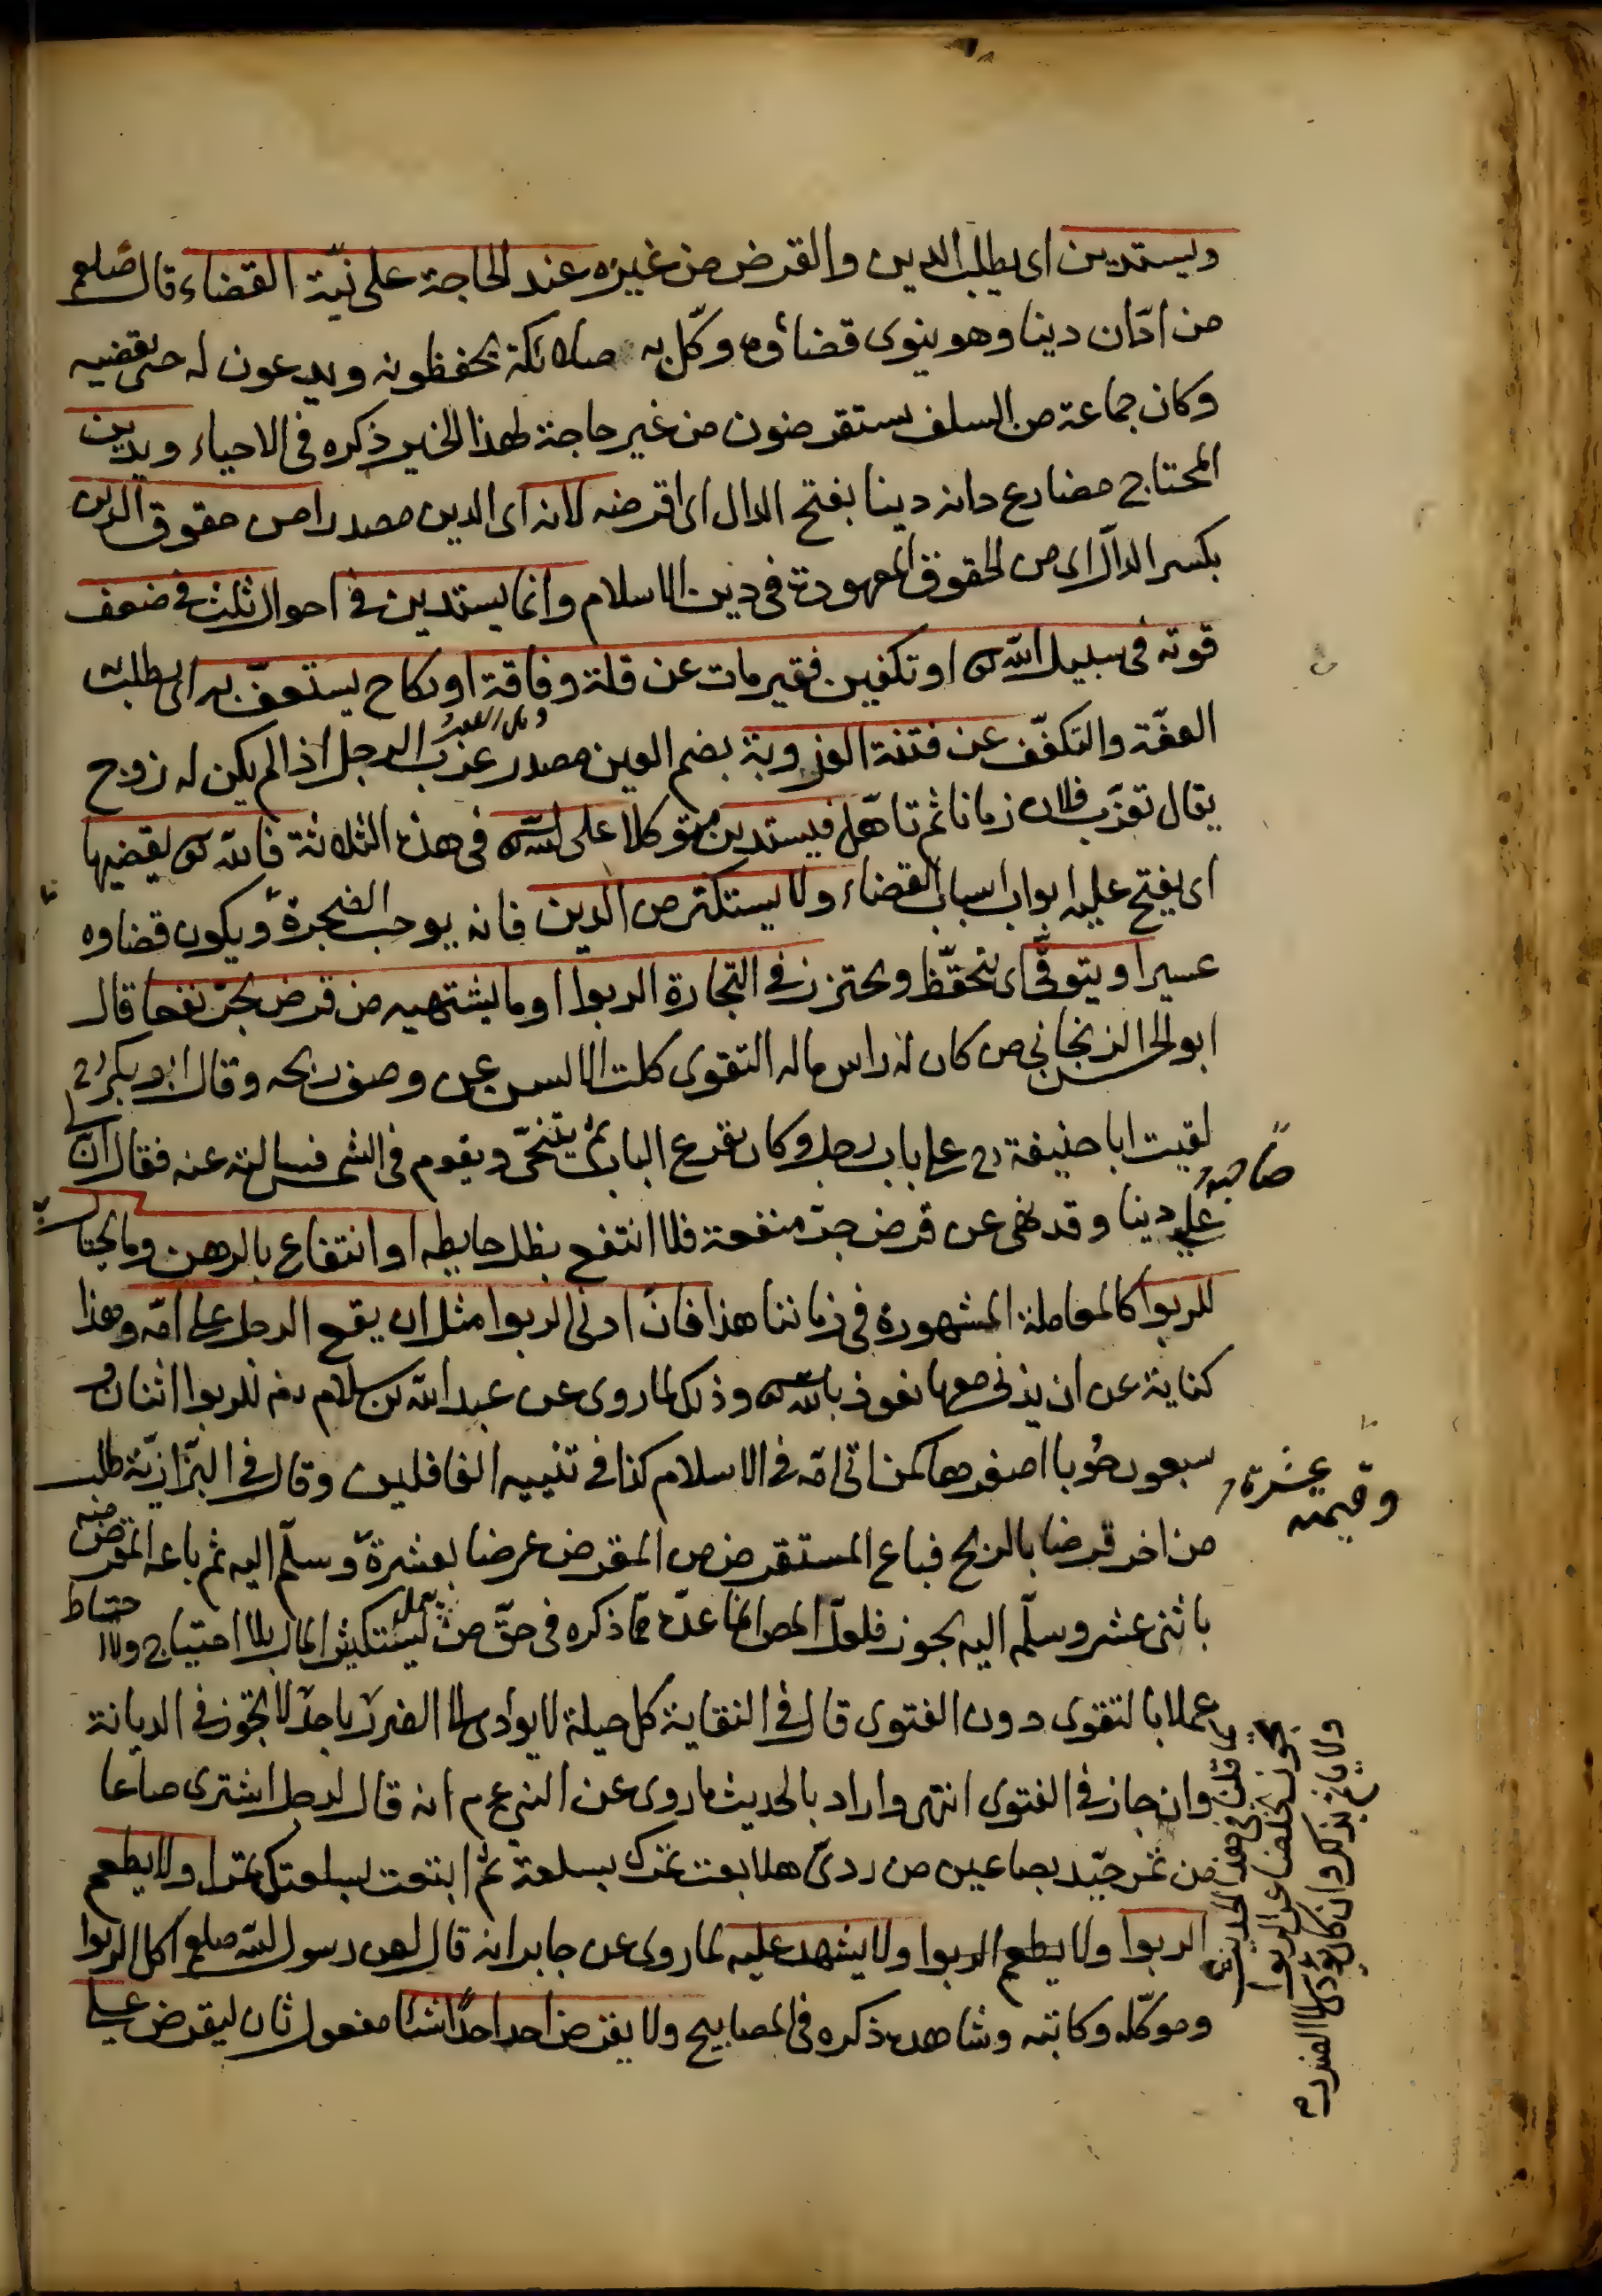 ويستدين اى يطلب الدين والقرض من غيره عند الحاجة على نيّة القضاء قال صلعم
من ادّان دينا وهو ينوى قضاؤه وكّل به ملائكة يحفظونه ويدعون له حتى يقضيه
وكان جماعة من السلف يستقرضون من غير حاجة لهذا الخبر ذكره فى الاحياء ويدين
المحتاج مضارع دانه دينا بفتح الدال اى اقرضه لانه اى الدين مصدرا من حقوق الدين
بكسر الدال اى من الحقوق المعهودة فى دين الاسلام وانما يستدين فى احوال ثلث فى ضعف
قوته فى سبيل الله تع او تكفين فقير مات عن قلة وفاقة او نكاح يستعفّ به اى يطلب
العفّة والتكفّف عن فتنة العزوبة بضم العين مصدر عزب الرجل اذا لم يكن له زوج
يقال تعزّب فلان زمانا ثم تاهّل فيستدين متوكلا على الله تع فى هذه الثلاثة فالله تع يقضيها
اى يفتح عليه ابواب اسباب القضاء ولا يستكثر من الدين فانه يوجب الضجرة ويكون قضاوه
عسيرا ويتوقّى اى يتحفّظ ويحترز فى التجارة الربوا وما يشتهيه من قرض يجرّ نفعا قال
ابو الحسن الزنجانى من كان له راس ماله التقوى كلت الالسن عن وصف ربحه وقال ابو بكر رح
لقيت ابا حنيفة رح على باب رجل وكان يقرع الباب ثم يتنحّى ويقوم فى الشمس فسالته عنه فقال انّ لى
صاحبه
على دينا وقد نهى عن قرض جرّ منفعة فلا انتفع بظل حايطه او انتفاع بالرهن وما يحتال به
للربوا كالمعاملة المشهورة فى زماننا هذا فانّ ادنى الربوا مثل ان يقع الرجل على امّه وهذا
كناية عن ان يزنى معها نعوذ بالله تع وذلك لما روى عن عبد الله بن سلام رضه للربوا اثنان و
سبعون حُوبا اصغرها كمن اتى امّه فى الاسلام كذا فى تنبيه الغافلين وقال فى البزّازيّة طلب
وقيمته عشرة
من اخر قرضا بالربح فباع المستقرض من المقرض عرضا بعشرة وسلّم اليه ثم باعه المقرض منه
باثنى عشر وسلّم اليه يجوز فلعلّ المص انما عدّه مما ذكره فى حقّ من يستكثر المال بلا احتياج ولا احتياط
عملا بالتقوى دون الفتوى قال فى النقاية كل حيلة لا يوادى الى الضرر باحد لا يجوز فى الديانة
وان جاز فى الفتوى انتهى واراد بالحديث ما روى عن النبى عم انه قال لرجل اشترى صاعا
من تمر جيّد بصاعين من ردىّ هلا بعت تمرك بسلعة ثم ابتعت بسلعتك تمرا ولا يطعم
الربوا ولا يطعم الربوا ولا يشهد عليه لما روى عن جابر انه قال لعن رسول الله صلعم اكل الربوا
وموكّله وكاتبه وشاهده ذكره فى المصابيح ولا يقرض احد احدًا شيئا مفعول ثان ليقرض على